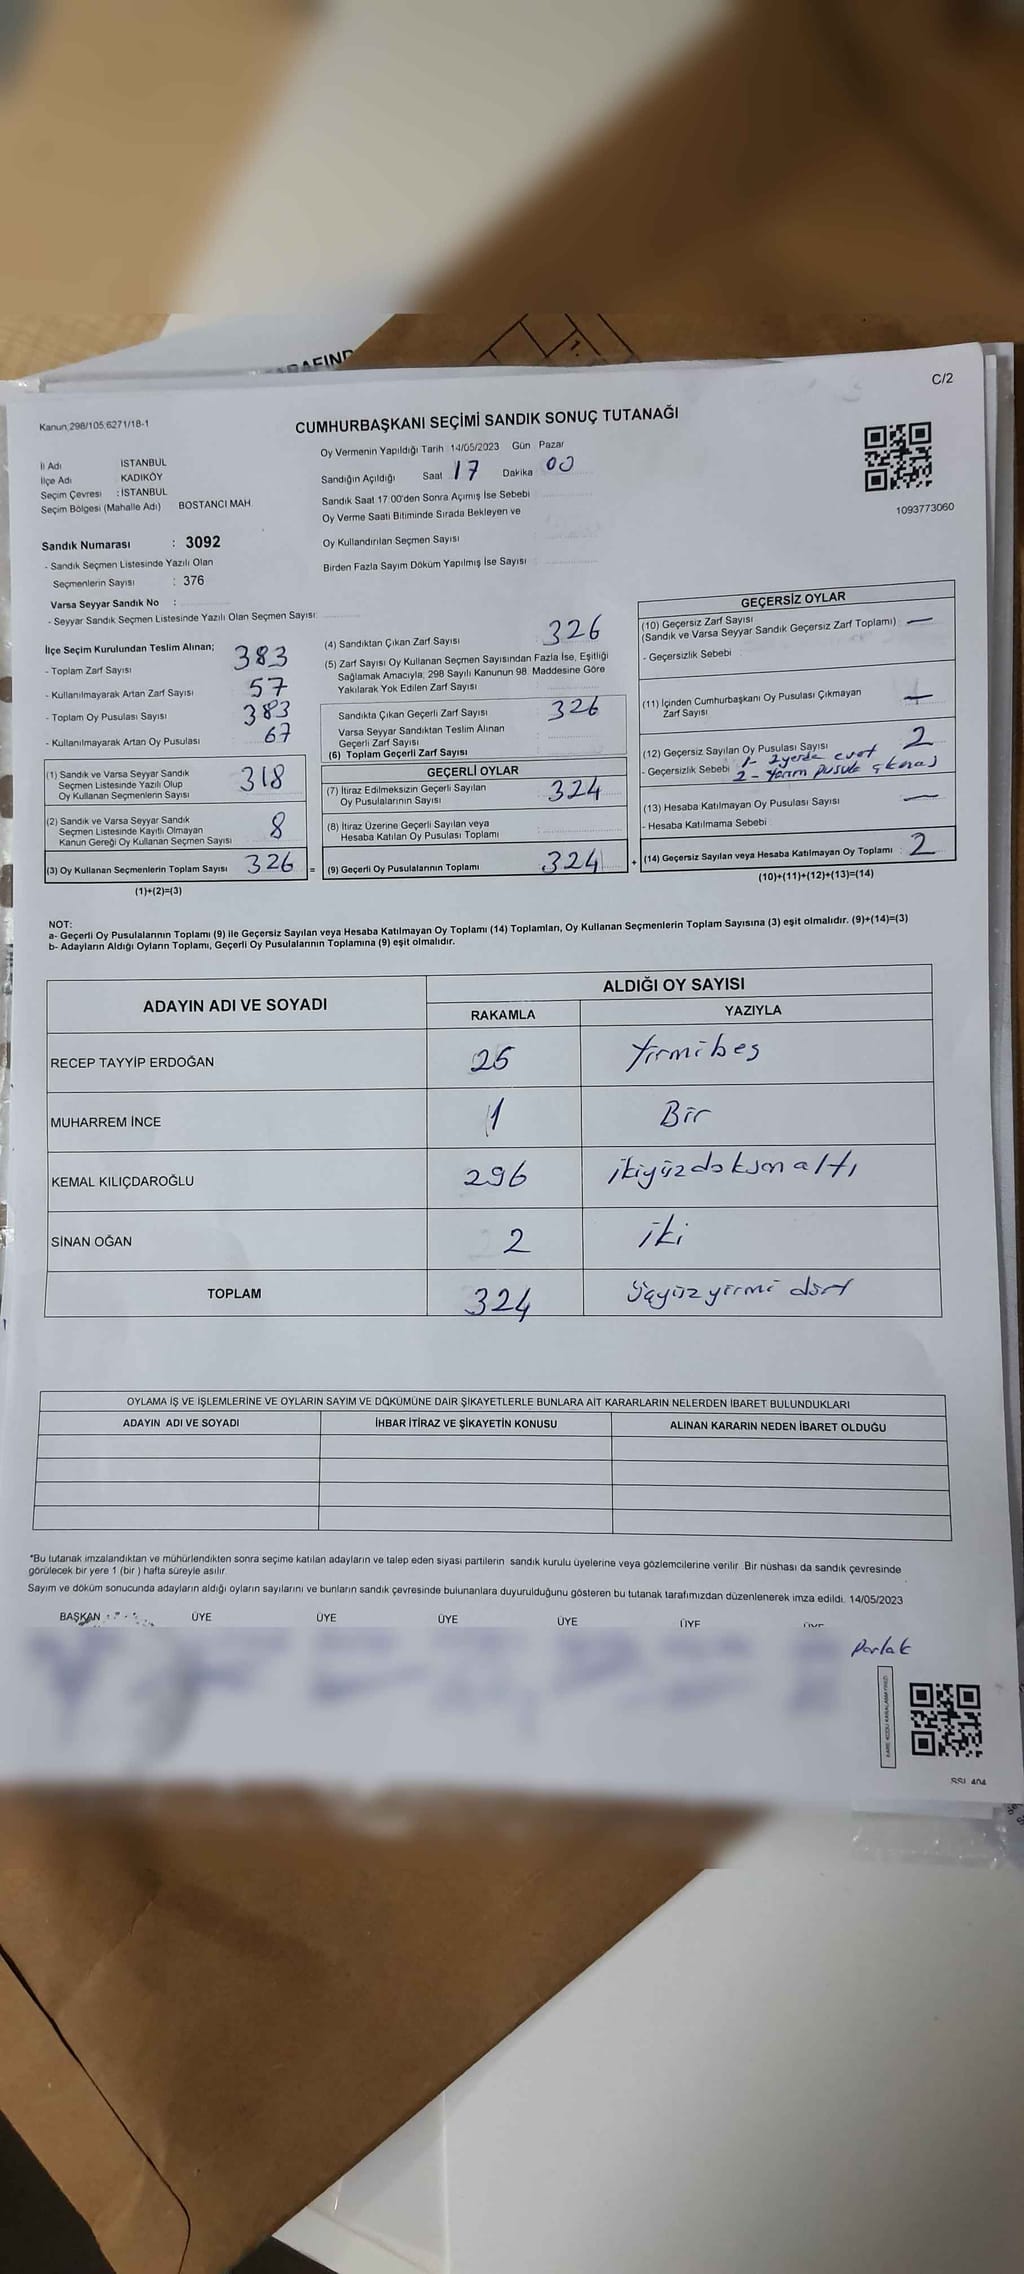 C/2
Kanun 298/105,6271/18-1
CUMHURBAŞKANI SEÇİMİ SANDIK SONUÇ TUTANAĞI
İl Adı İSTANBUL
İlçe Adı KADIKÖY
Seçim Çevresi : İSTANBUL
Seçim Bölgesi (Mahalle Adı) BOSTANCI MAH.
Oy Vermenin Yapıldığı Tarih 14/05/2023 Gün Pazar
Sandığın Açıldığı Saat 17 Dakika 00
Sandık Saat 17:00'den Sonra Açımış İse Sebebi
Oy Verme Saati Bitiminde Sırada Bekleyen ve
Oy Kullandırılan Seçmen Sayısı
Birden Fazla Sayım Döküm Yapılmış İse Sayısı
1093773060
Sandık Numarası : 3092
- Sandık Seçmen Listesinde Yazılı Olan
Seçmenlerin Sayısı : 376
Varsa Seyyar Sandık No :
- Seyyar Sandık Seçmen Listesinde Yazılı Olan Seçmen Sayısı:
İlçe Seçim Kurulundan Teslim Alınan;
- Toplam Zarf Sayısı 383
- Kullanılmayarak Artan Zarf Sayısı 57
- Toplam Oy Pusulası Sayısı 383
- Kullanılmayarak Artan Oy Pusulası 67
(1) Sandık ve Varsa Seyyar Sandık
Seçmen Listesinde Yazılı Olup
Oy Kullanan Seçmenlerin Sayısı 318
(2) Sandık ve Varsa Seyyar Sandık
Seçmen Listesinde Kayıtlı Olmayan
Kanun Gereği Oy Kullanan Seçmen Sayısı 8
(3) Oy Kullanan Seçmenlerin Toplam Sayısı 326 =
(1)+(2)=(3)
(4) Sandıktan Çıkan Zarf Sayısı 326
(5) Zarf Sayısı Oy Kullanan Seçmen Sayısından Fazla İse, Eşitliği
Sağlamak Amacıyla, 298 Sayılı Kanunun 98. Maddesine Göre
Yakılarak Yok Edilen Zarf Sayısı
Sandıkta Çıkan Geçerli Zarf Sayısı 326
Varsa Seyyar Sandıktan Teslim Alınan
Geçerli Zarf Sayısı
(6) Toplam Geçerli Zarf Sayısı
GEÇERLİ OYLAR
(7) İtiraz Edilmeksizin Geçerli Sayılan
Oy Pusulalarının Sayısı 324
(8) İtiraz Üzerine Geçerli Sayılan veya
Hesaba Katılan Oy Pusulası Toplamı
(9) Geçerli Oy Pusulalarının Toplamı 324 +
GEÇERSİZ OYLAR
(10) Geçersiz Zarf Sayısı
(Sandık ve Varsa Seyyar Sandık Geçersiz Zarf Toplamı) : —
- Geçersizlik Sebebi :
(11) İçinden Cumhurbaşkanı Oy Pusulası Çıkmayan
Zarf Sayısı —
(12) Geçersiz Sayılan Oy Pusulası Sayısı 2
- Geçersizlik Sebebi 1- 2 yerde evet
2- yarım pusula
(13) Hesaba Katılmayan Oy Pusulası Sayısı —
- Hesaba Katılmama Sebebi
(14) Geçersiz Sayılan veya Hesaba Katılmayan Oy Toplamı : 2
(10)+(11)+(12)+(13)=(14)
NOT:
a- Geçerli Oy Pusulalarının Toplamı (9) ile Geçersiz Sayılan veya Hesaba Katılmayan Oy Toplamı (14) Toplamları, Oy Kullanan Seçmenlerin Toplam Sayısına (3) eşit olmalıdır. (9)+(14)=(3)
b- Adayların Aldığı Oyların Toplamı, Geçerli Oy Pusulalarının Toplamına (9) eşit olmalıdır.
ADAYIN ADI VE SOYADI
ALDIĞI OY SAYISI
RAKAMLA YAZIYLA
RECEP TAYYİP ERDOĞAN 25 Yirmibeş
MUHARREM İNCE 1 Bir
KEMAL KILIÇDAROĞLU 296 ikiyüzdoksanaltı
SİNAN OĞAN 2 iki
TOPLAM 324 Üçyüzyirmi dört
OYLAMA İŞ VE İŞLEMLERİNE VE OYLARIN SAYIM VE DÖKÜMÜNE DAİR ŞİKAYETLERLE BUNLARA AİT KARARLARIN NELERDEN İBARET BULUNDUKLARI
ADAYIN ADI VE SOYADI İHBAR İTİRAZ VE ŞİKAYETİN KONUSU ALINAN KARARIN NEDEN İBARET OLDUĞU
*Bu tutanak imzalandıktan ve mühürlendikten sonra seçime katılan adayların ve talep eden siyasi partilerin sandık kurulu üyelerine veya gözlemcilerine verilir. Bir nüshası da sandık çevresinde
görülecek bir yere 1 (bir ) hafta süreyle asılır.
Sayım ve döküm sonucunda adayların aldığı oyların sayılarını ve bunların sandık çevresinde bulunanlara duyurulduğunu gösteren bu tutanak tarafımızdan düzenlenerek imza edildi. 14/05/2023
BAŞKAN ÜYE ÜYE ÜYE ÜYE ÜYE ÜYE
Parlak
KARE KODU KARALAMAYINIZ!